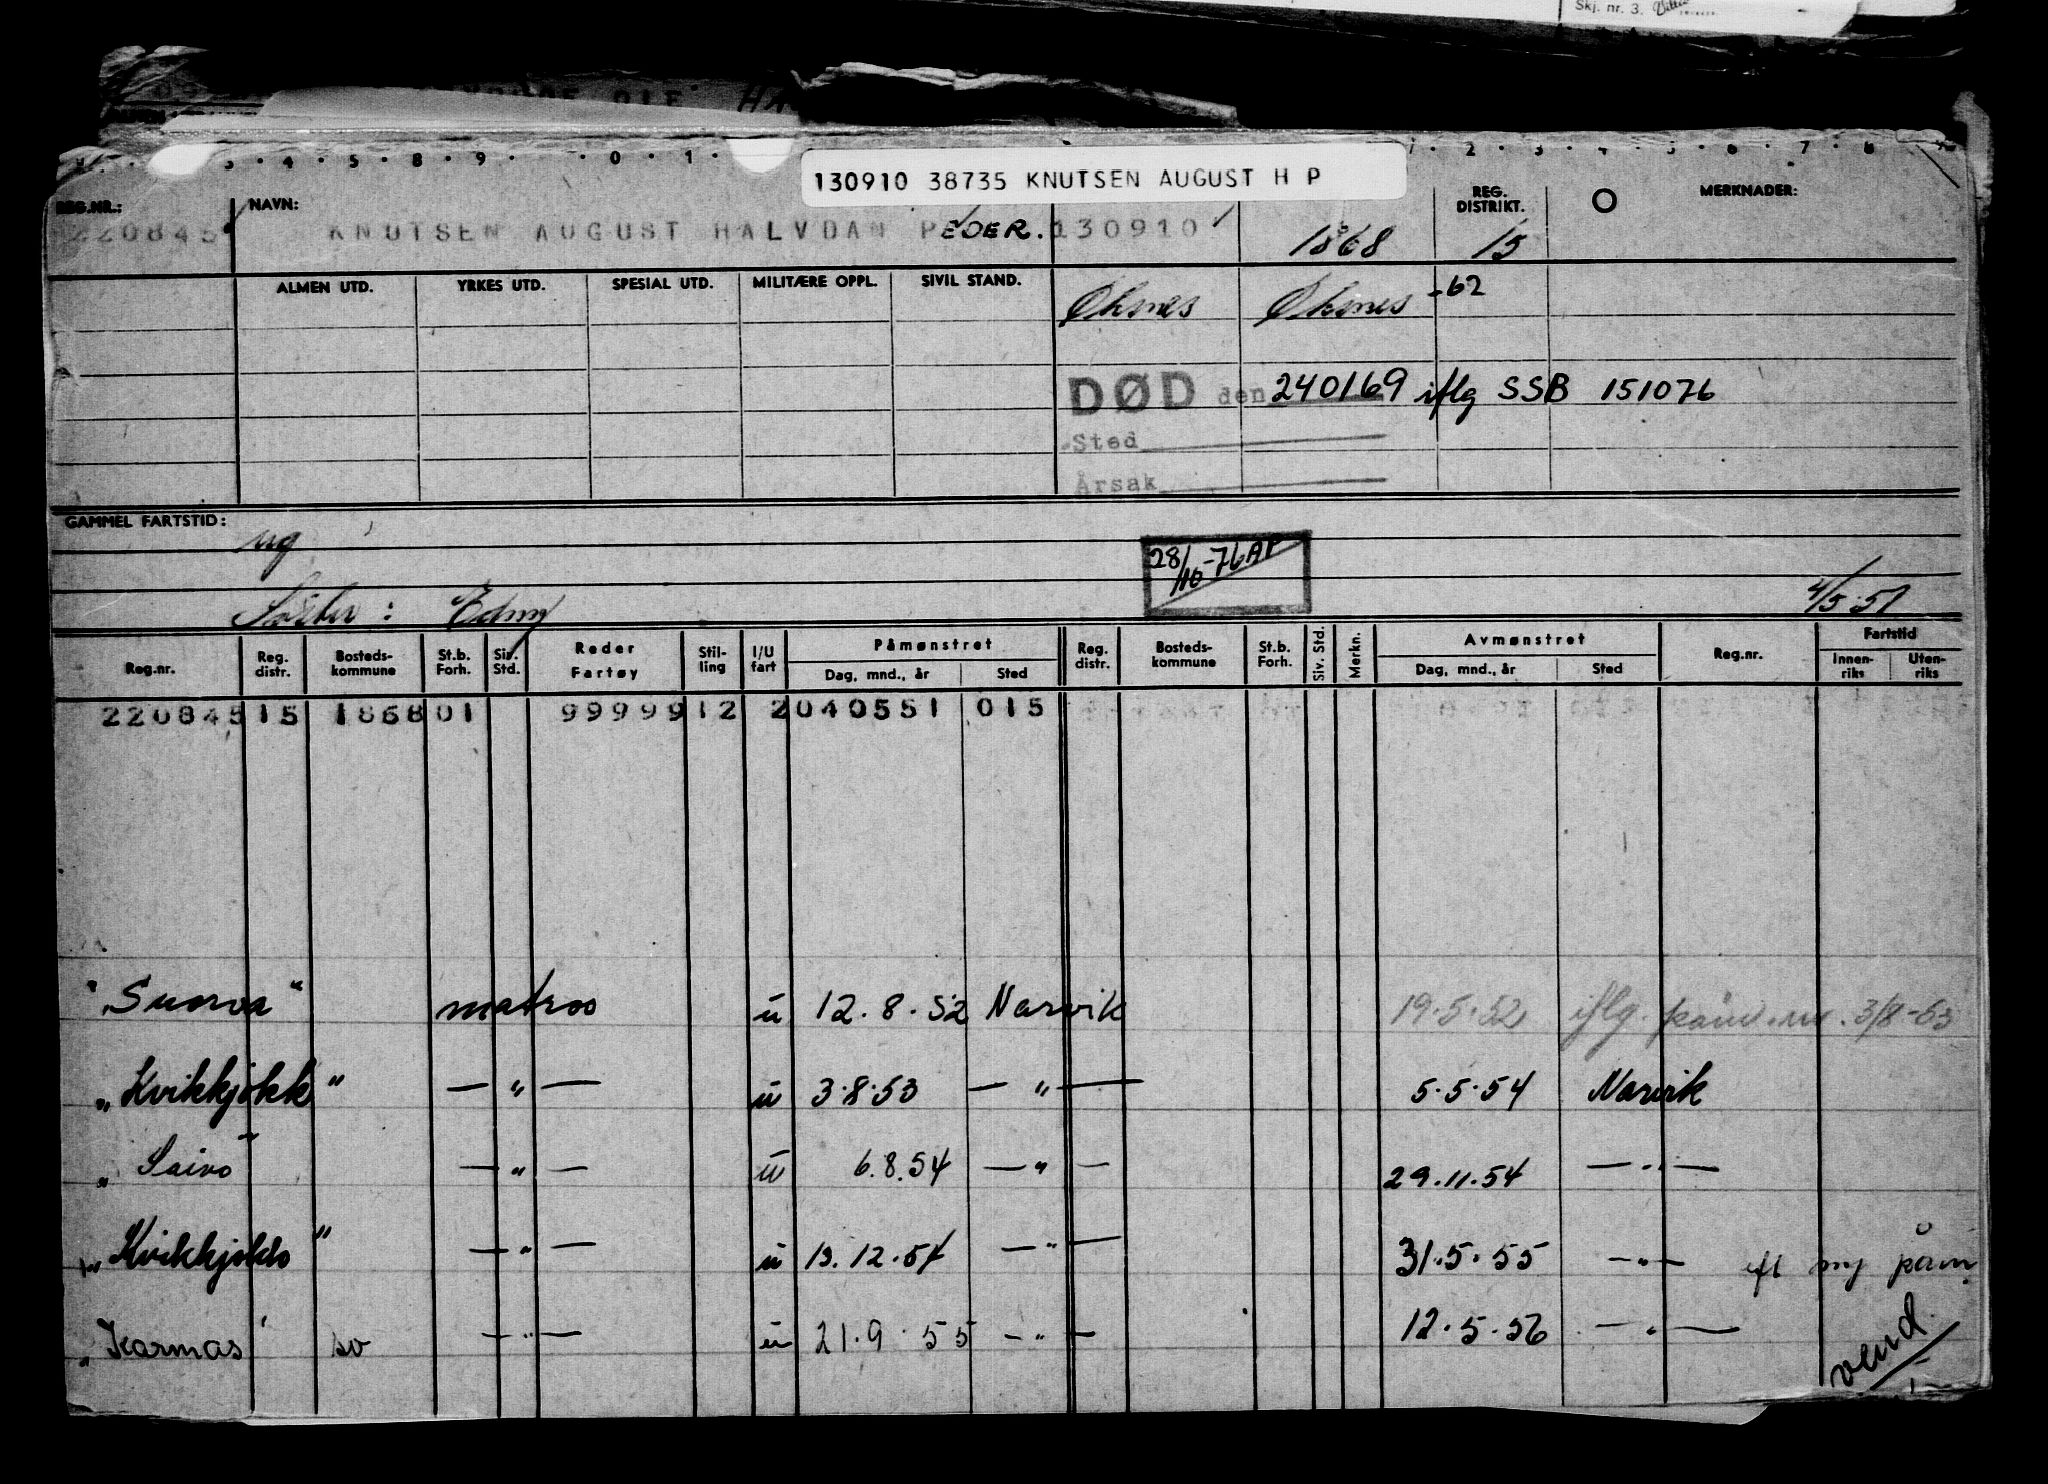 Skj. nr. 3.
130910 38735 KNUTSEN AUGUST H P
3 . 4 . 5 . 8 . 9 . 0 . 1 . 1 . 2 . 3 . 4 . 5 . 6 . 7 . 8
REG.NR.: NAVN: REG. DISTRIKT. MERKNADER:
220845 KNUTSEN AUGUST HALVDAN PEDER. 130910 1868 15
ALMEN UTD. YRKES UTD. SPESIAL UTD. MILITÆRE OPPL. SIVIL STAND. Øksnes Øksnes -62
DØD den 240169 iflg SSB 151076
Sted
Årsak
GAMMEL FARTSTID:
ug
28/10-76 AP
Søster : Edny 4/5 51
Reg.nr. Reg. distr. Bosteds-kommune St.b. Forh. Siv. Std. Reder Fartøy Stil-ling I/U fart Påmønstret Dag, mnd., år Sted Reg. distr. Bosteds-kommune St.b. Forh. Siv. Std. Merkn. Avmønstret Dag, mnd., år Sted Reg.nr. Fartstid Innen-riks Uten-riks
220845 15 1868 01 99999 12 2 040551 015
"Suorva" matros u 12.8.52 Narvik 19.5.52 iflg. påm. 3/8-53
"Kvikkjokk" — " — u 3.8.53 — " — 5.5.54 Narvik
" Saivo " — " — u 6.8.54 — " — 29.11.54 — " —
"Kvikkjokk" — " — u 13.12.54 — " — 31.5.55 — " — påm
"Karmas" — " — u 21.9.55 — " — 12.5.56 — " —
vend.